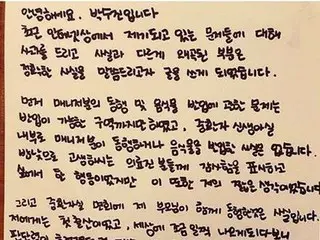 안녕하세요, 박수진입니다
최근 인터넷상에서 제기되고 있는 문제들에 대해
사과를 드리고 사실과 다르게 왜곡된 부분은
정확한 사실을 말씀드리고자 글을 쓰게 되었습니다.
먼저 매니저분의 동행 및 음식물 반입에 관한 문제는
반입이 가능한 구역까지만이었고, 중환자 신생아실
내부로 매니저분이 동행하거나 음식물을 반입한 사실은 없습니다.
밤낮으로 고생하시는 의료진 분들께 감사함을 표하고
싶어서 한 행동이었지만 이 또한 저의 짧은 생각이었습니다
그리고 중환자실 면회에 저 부모님이 함께 동행한것은 사실입니다.
저에게는 첫 출산이었고, 세상에 조금 일찍 나오게되다보니